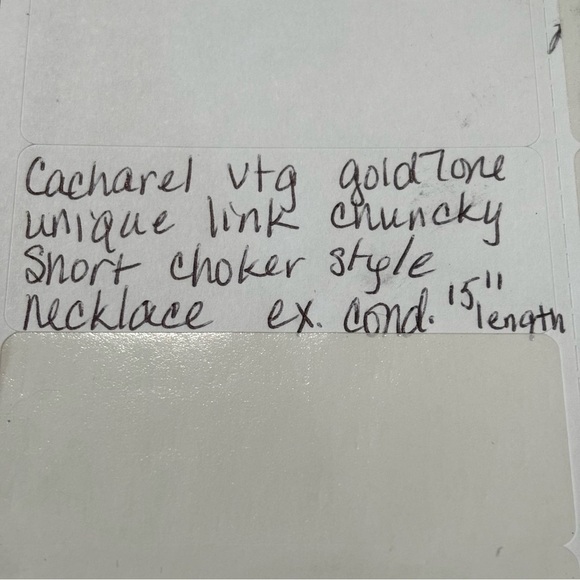 Cacharel vtg goldTone
unique link chuncky
Short choker style
necklace ex. cond. 15" length